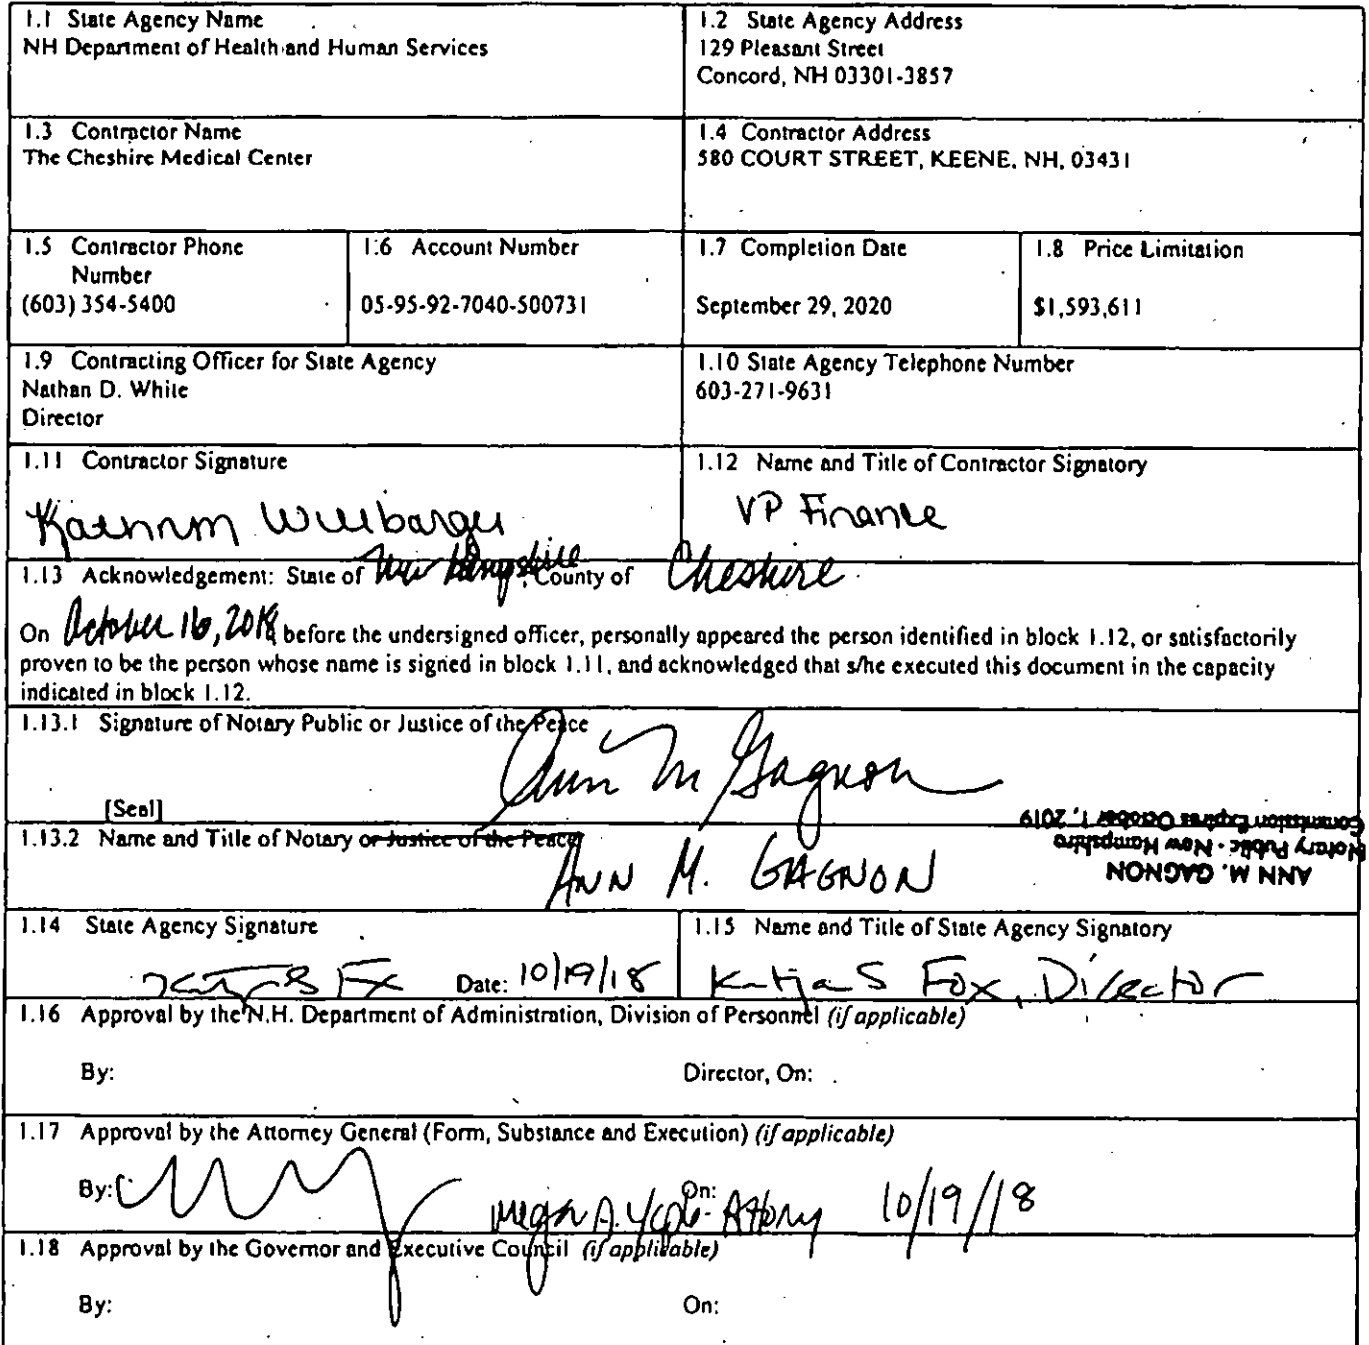 1.1 State Agency Name
NH Department of Health and Human Services
1.2 State Agency Address
129 Pleasant Street
Concord, NH 03301-3857
1.3 Contractor Name
The Cheshire Medical Center
1.4 Contractor Address
580 COURT STREET, KEENE, NH, 03431
1.5 Contractor Phone
Number
(603) 354-5400
1.6 Account Number
05-95-92-7040-500731
1.7 Completion Date
September 29, 2020
1.8 Price Limitation
$1,593,611
1.9 Contracting Officer for State Agency
Nathan D. White
Director
1.10 State Agency Telephone Number
603-271-9631
1.11 Contractor Signature
1.12 Name and Title of Contractor Signatory
VP Finance
1.13 Acknowledgement: State of New Hampshire, County of Cheshire
On October 16, 2018 before the undersigned officer, personally appeared the person identified in block 1.12, or satisfactorily
proven to be the person whose name is signed in block 1.11, and acknowledged that s/he executed this document in the capacity
indicated in block 1.12.
1.13.1 Signature of Notary Public or Justice of the Peace
Ann M Gagnon
[Seal]
1.13.2 Name and Title of Notary or Justice of the Peace
ANN M. GAGNON
ANN M. GAGNON
Notary Public - New Hampshire
Commission Expires October 1, 2019
1.14 State Agency Signature
Date: 10/19/18
1.15 Name and Title of State Agency Signatory
Katja S Fox, Director
1.16 Approval by the N.H. Department of Administration, Division of Personnel (if applicable)
By: Director, On:
1.17 Approval by the Attorney General (Form, Substance and Execution) (if applicable)
By: On:
Megan A. 10/19/18
1.18 Approval by the Governor and Executive Council (if applicable)
By: On: